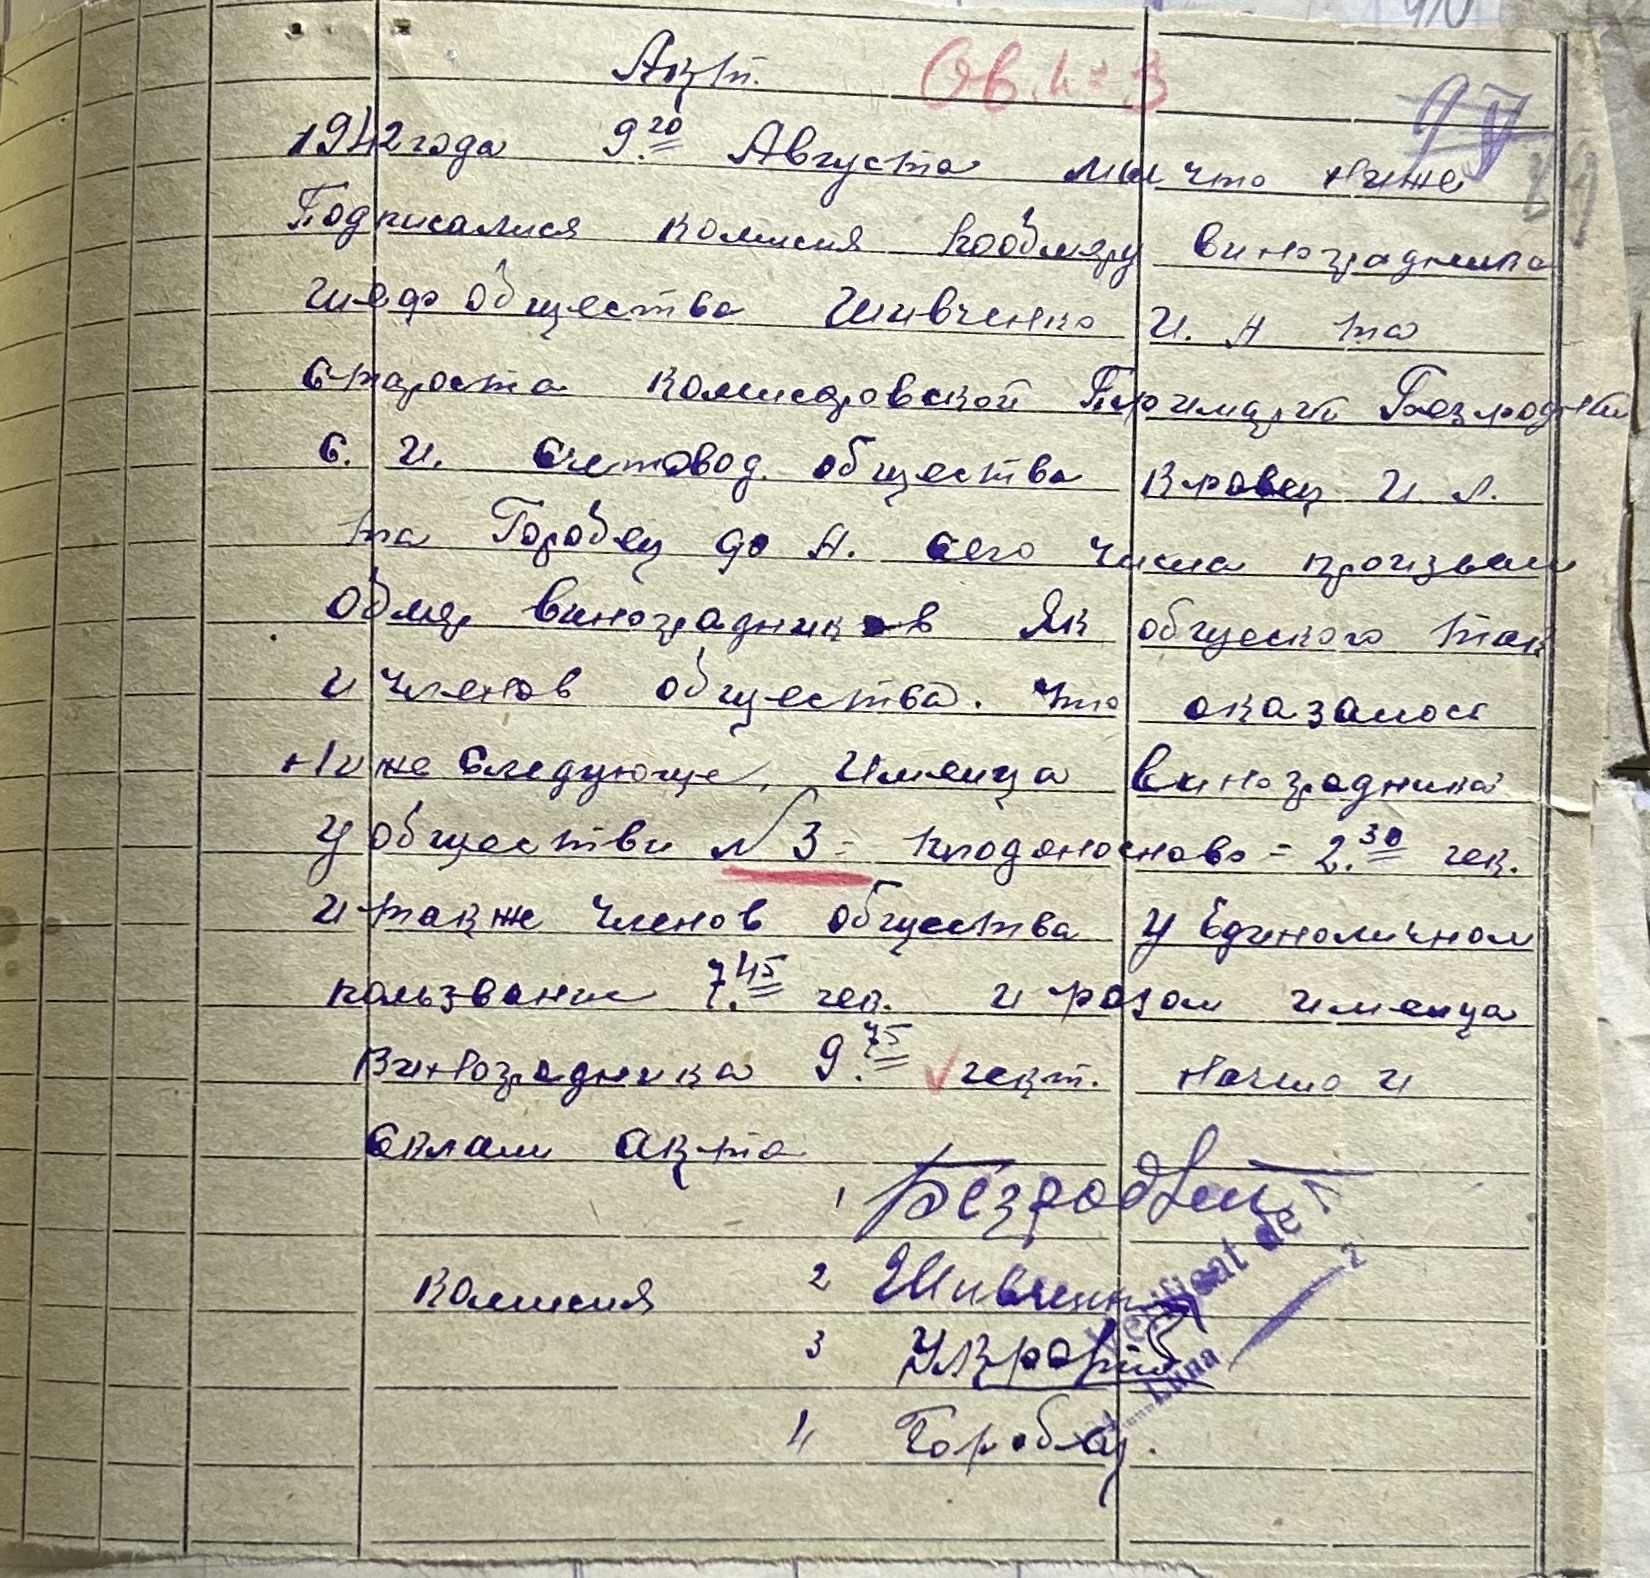 Акт.
Ов. № 3
1942 года 9.20 Августа мы что ниже
Подписалися комисия пообмяру виноградника
шеф общества Шивченко И. Н та
Староста Комисаровской Примарии Безродний
С. И. Счетовод. общества Кравец И Л.
та Горобец До Н. сего числа произвели
Обмяр виноградников Як общеского так
и членов общества. что оказалос
Ниже следующе, Имеица виноградника
у обществи № 3 - плодоносново = 2.30 гек.
и также членов общества у Единоличном
ползвание 7.45 гек. и разом имеица
Виноградника 9.75 гект. начно и
склали акта
1 Безродний
Комисия 2 Шивченко
3 УКравец
4 Горобец.
Verificat de
Luna
2